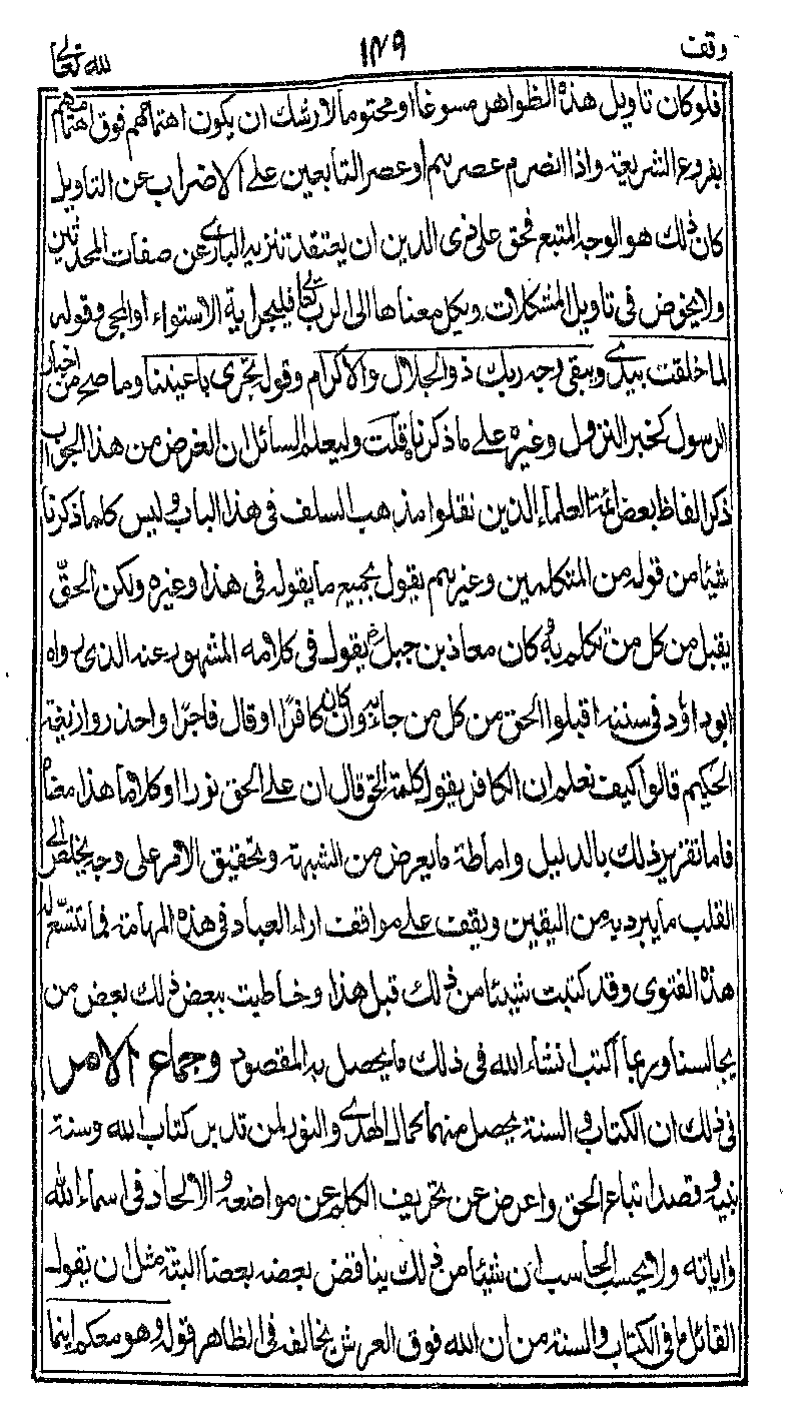 وقف
١٤٩
لله تعالى
فلو كان تاويل هذه الظواهر مسوغا او محتوما لاوشك ان يكون اهتمامهم فوق اهتمامهم
بفروع الشريعة واذا انصرم عصرهم او عصر التابعين على الاضراب عن التاويل
كان ذلك هو الوجه المتبع فحق على ذي الدين ان يعتقد تنزيه الباري عن صفات المحدثين
ولا يخوض في تاويل المشكلات ويكل معناها الى الرب تعالى فليجر اية الاستواء او المجي وقوله
لما خلقت بيدي ويبقى وجه ربك ذو الجلال والاكرام وقوله تجري باعيننا وما صح من اخبار
الرسول كخبر النزول وغيره على ما ذكرناه قلت وليعلم السائل ان الغرض من هذا الجواب
ذكر الفاظ بعض ائمة العلماء الذين نقلوا مذهب السلف في هذا الباب وليس كلما ذكرنا
شيئا من قوله من المتكلمين وغيرهم يقول بجميع ما يقوله في هذا وغيره ولكن الحقّ
يقبل من كل من تكلم به وكان معاذ بن جبل يقول في كلامه المشهور عنه الذي رواه
ابو داؤد في سننه اقبلوا الحق من كل من جاء به وان كان كافرًا او قال فاجرًا واحذروا زيغة
الحكيم قالوا كيف نعلم ان الكافر يقول كلمة الحق قال ان على الحق نورا او كلاما هذا معناه
فاما تقرير ذلك بالدليل واماطة ما يعرض من الشبهة وتحقيق الامر على وجه يخلص الى
القلب ما يبرد به من اليقين ويقف على مواقف اراء العباد في هذه المهامة فما تتسّع له
هذه الفتوى وقد كتبت شيئا من ذلك قبل هذا وخاطبت ببعض ذلك بعض من
يجالسنا وربما اكتب انشاء الله في ذلك ما يحصل به المقصود وجماع الامر
في ذلك ان الكتاب والسنة يحصل منهما كمال الهدى والنور لمن تدبر كتاب الله وسنة
نبيه وقصد اتباع الحق واعرض عن تحريف الكلم عن مواضعه والالحاد في اسماء الله
واياته ولا يحسب الحاسب ان شيئا من ذلك يناقض بعضه بعضا البتة مثل ان يقول
القائل ما في الكتاب والسنة من ان الله فوق العرش يخالفه في الظاهر قوله وهو معكم اينما